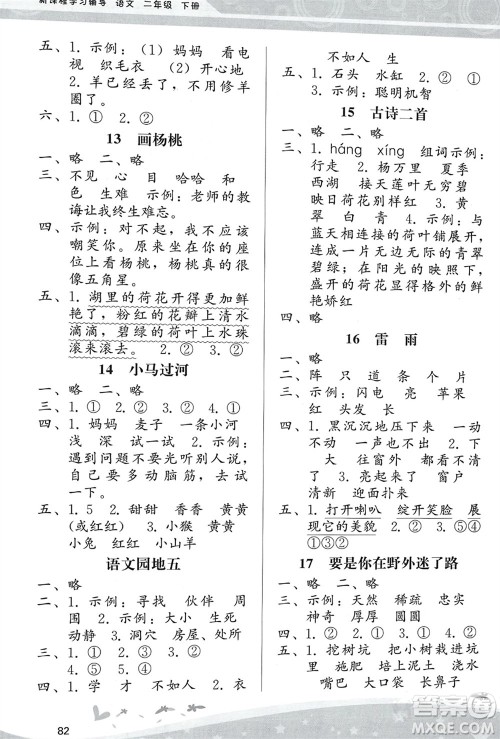 新课程学习辅导 语文 二年级 下册
五、1. 示例：(1) 妈妈 看电
视 织毛衣 (2) 开心地
2. 羊已经丢了，还不修羊
圈了。
六、1. ① 2. ②
13 画杨桃
一、略 二、略
三、不 心 目 哈哈 和
色 生难 示例：老师的教
诲让我终生难忘。
四、示例：对不起，我不应该
嘲笑你。原来坐在你的
座位上看杨桃，杨桃真的很
像五角星。
五、1. 湖里的荷花开得更加鲜
艳了，粉红的花瓣上清水
滴滴，碧绿的荷叶上水珠
滚来滚去。 2. ② ③
14 小马过河
一、略 二、略
三、1. ① 2. ② 3. ① 4. ②
四、1. 妈妈 麦子 一条小河
浅 深 试一试 2. 示例：
遇到问题不光要听别人
说，还要自己动动脑筋，试
一下。
五、1. 5 2. 甜甜 香香 黄黄
(或红红) 3. ② 4. 小猴 黄黄
小兔 红红 小山羊
语文园地五
一、略
二、1. 示例：寻找 伙伴 周
围 2. 示例：大小 生死
动静 3. 洞穴 房屋、处所
三、1. ② 2. ① 3. ②
4. ⑤ 5. ④
四、1. 学 才 不如人 2. 衣
82
不如人
五、1. 石头 水缸 2. ① ②
3. 示例：聪明机智
15 古诗二首
一、略 二、略
三、1. háng xíng 组词示例：
行走 2. 杨万里 夏季
西湖 接天莲叶无穷碧
映日荷花别样红 3. 黄
翠 白 青 4. 示例：与
蓝天相接的荷叶铺展开，
一片无边无际的青翠碧
绿；在阳光的映照下，盛
开的荷花显得格外的鲜
艳娇红
四、略
16 雷雨
一、略
二、阵 只 道 条 个 场
三、示例：闪电 亮 苹果
红 头发 长
四、1. 黑沉沉地压下来 一动
不动 一声也不出 2. 越来
越大 3. 亮起来了 窗户
清新 迎面扑来
五、1. 打开喇叭 绽开笑脸 展
现它的美貌 2. ④⑤
①③② 3. ②
17 要是你在野外迷了路
一、略 二、略
三、示例：天然 稀疏 忠实
神奇 厚厚 圆圆
四、① ②
五、1. 挖树坑 栽小树 填土
施肥 上下起伏 浇水
嘴巴 大口袋 长头发